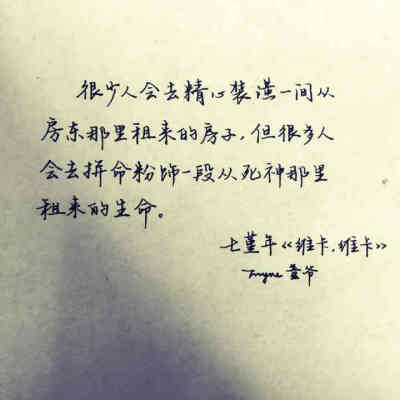 很少人会去精心装潢一间从
房东那里租来的房子，但很多人
会去拼命粉饰一段从死神那里
租来的生命。
七堇年《维卡，维卡》